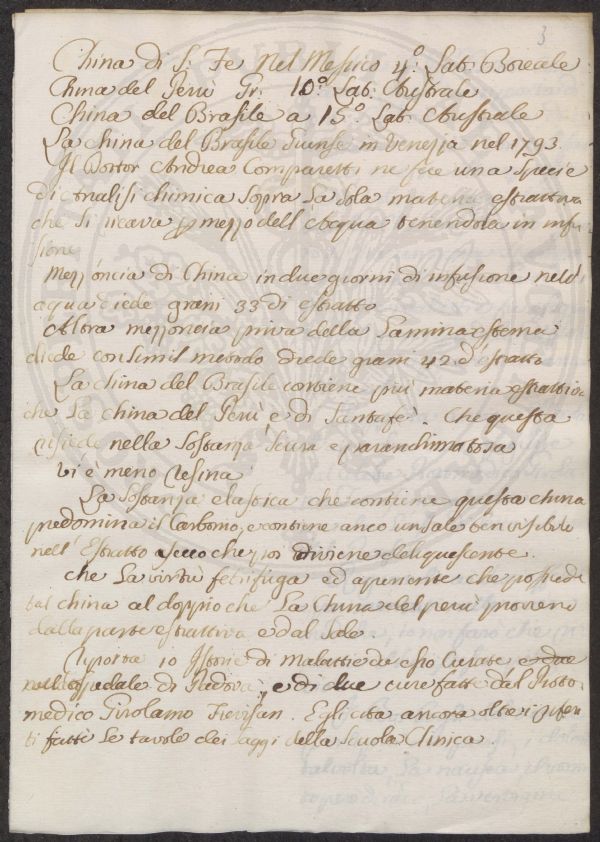 3
China di S. Fe nel Messico 4.° Lat. Boreale
China del Perù Gr. 10.° Lat. Australe
China del Brasile a 15.° Lat. Australe
La china del Brasile Giunse in Venezia nel 1793.
Il Dottor Andrea Comparetti ne fece una specie
di Analisi chimica sopra la sola materia estrattiva
che si ricava per mezzo dell'Acqua tenendola in infu-
sione
Mezz'oncia di China in due giorni di infusione nell'
acqua diede grani 33 di estratto
Altra mezz'oncia priva della lamina esterna
con simil metodo diede grani 42 d'estratto
La china del Brasile contiene più materia estrattiva
che La china del Perù e di Santafè. Che questa
risiede nella Sostanza scura e parenchimatosa
vi è meno Resina
La Sostanza elastica che contiene questa china
predomina il Carbonio, e contiene anco un sale ben visibile
nell'Estratto secco che poi diviene deliquescente.
che La virtù febrifuga ed aperiente che possiede
tal china al doppio che La China del perù proviene
dalla parte estrattiva e dal Sale.
Riporta 10 Istorie di Malattie da esso Curate e due
nell'ospedale di Padova, e di due cure fatte dal Proto-
medico Girolamo Trevisan. Egli cita ancora oltre i
fatti Le tavole dei saggi della Scuola Clinica.